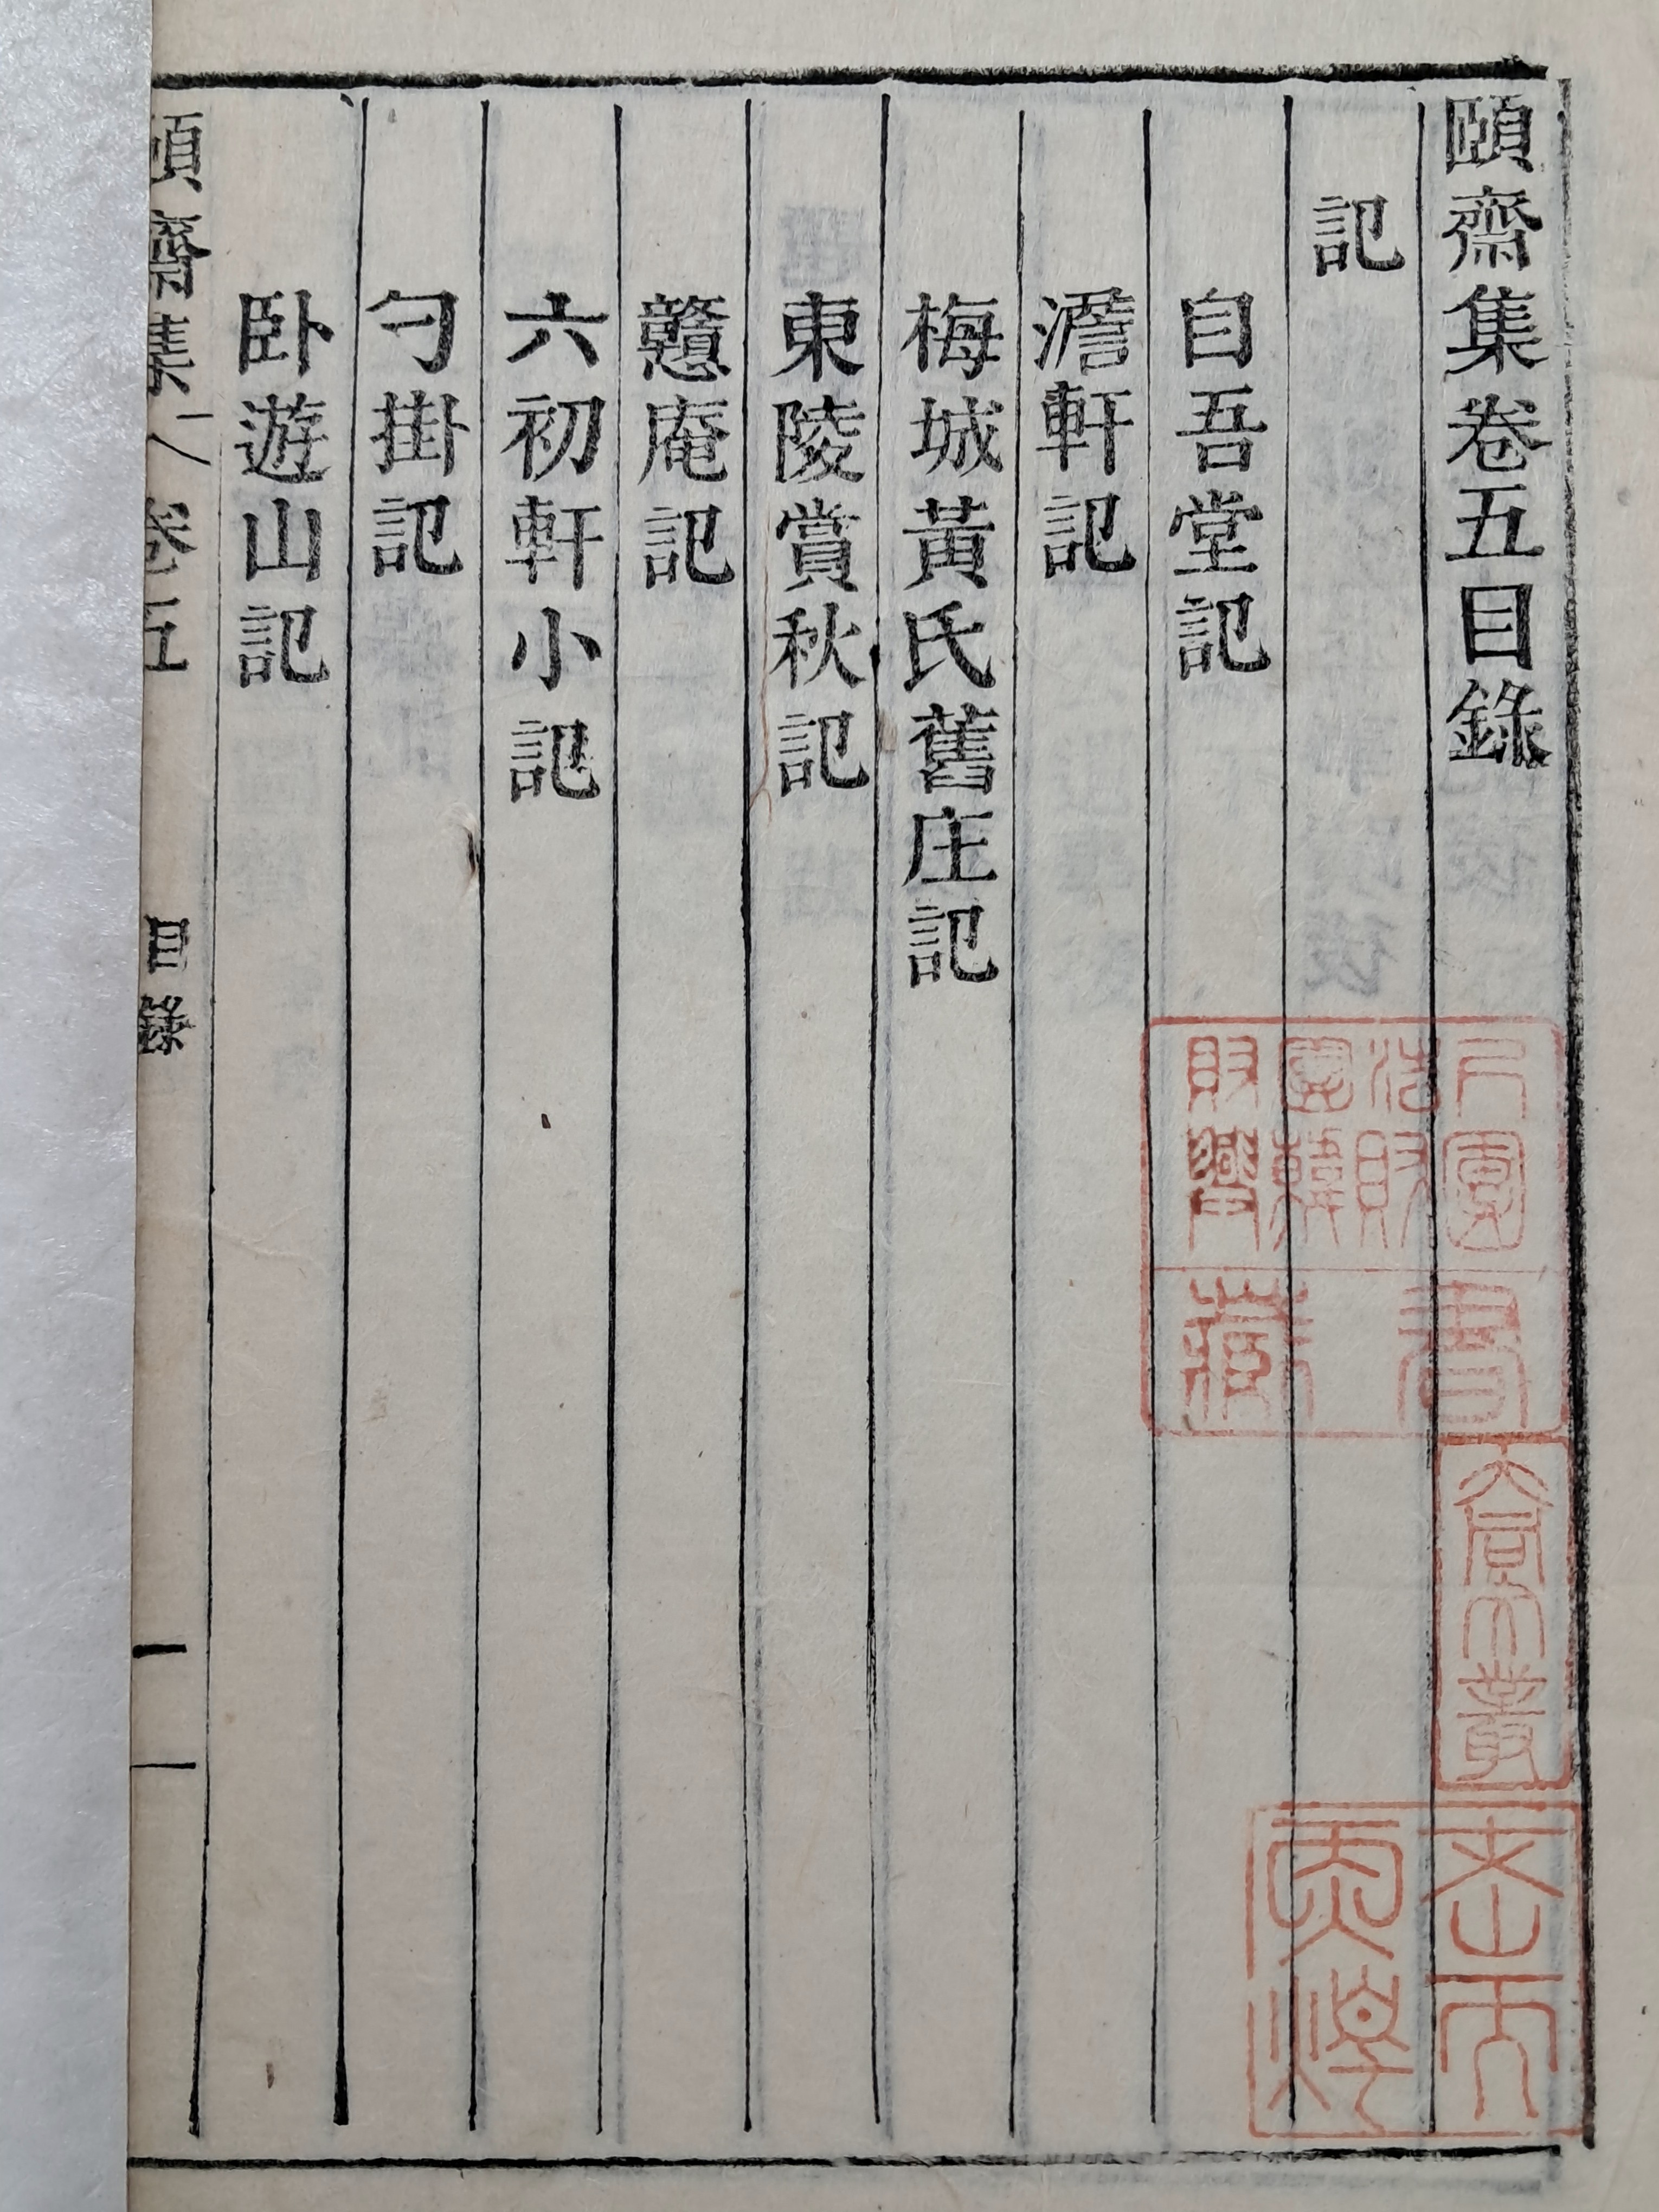 頤齋集卷五目錄
記
自吾堂記
澹軒記
梅城黃氏舊庄記
東陵賞秋記
戇庵記
六初軒小記
勺掛記
卧遊山記
頤齋集 卷五 目錄 一